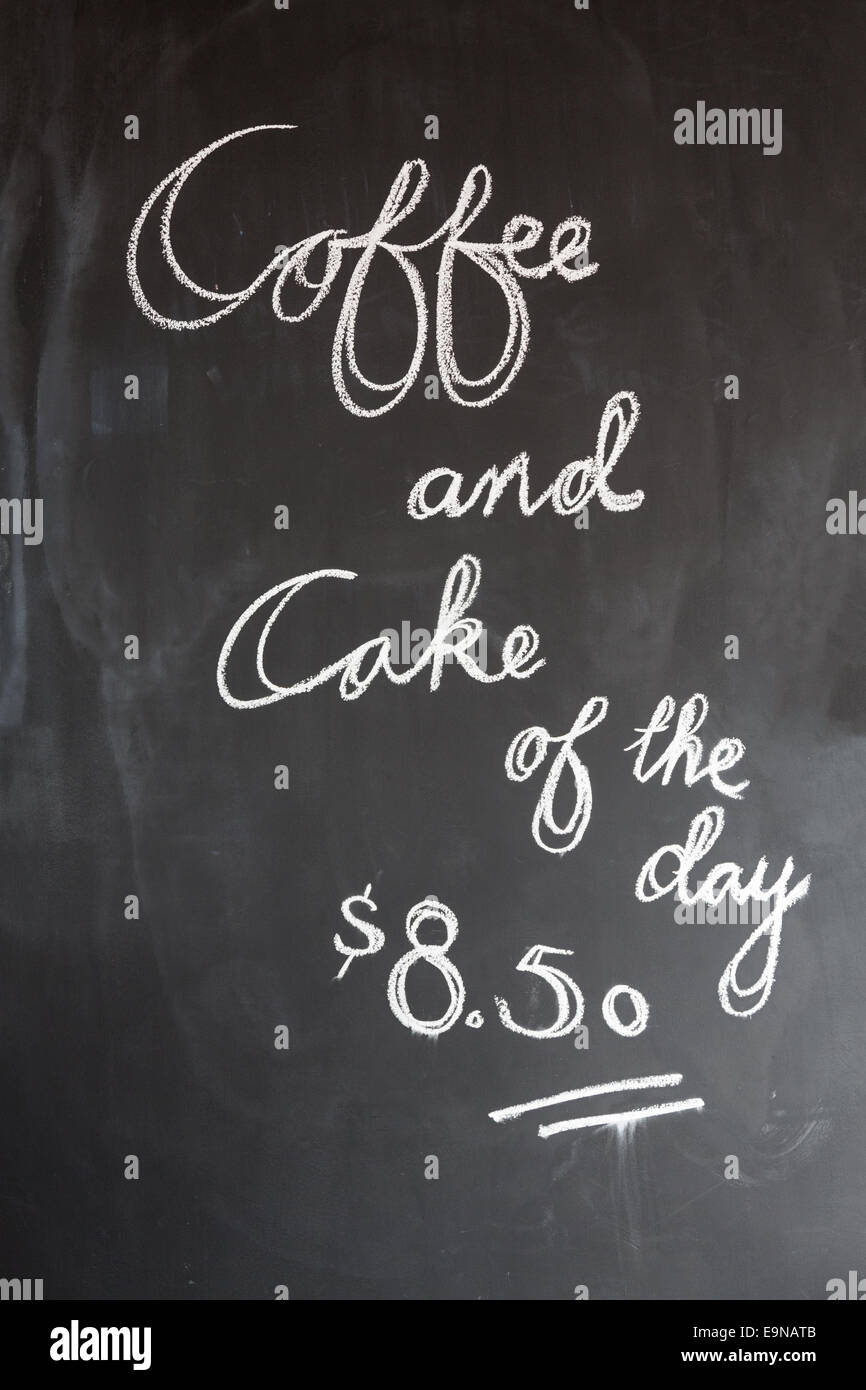 Coffee
and
Cake
of the
day
$8.50
alamy
Image ID: E9NATB
www.alamy.com